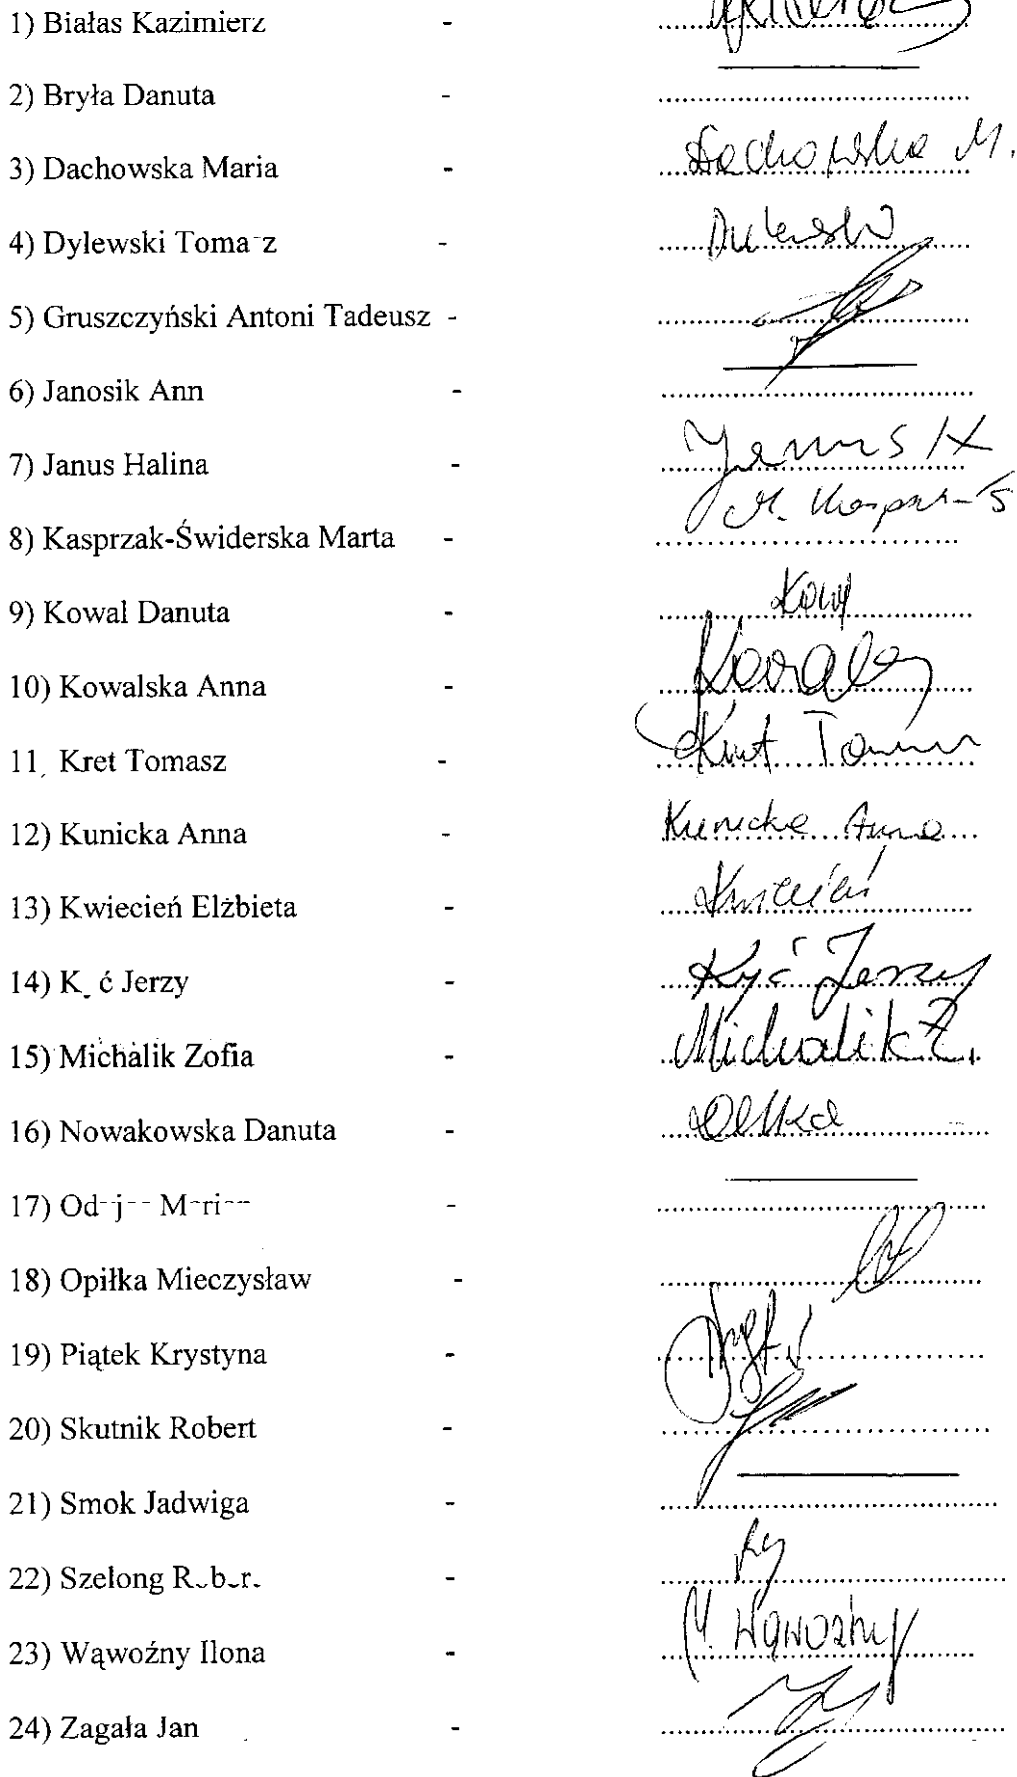 1) Białas Kazimierz -
2) Bryła Danuta -
3) Dachowska Maria - Dachowska M.
4) Dylewski - Dylewski
5) Gruszczyński Antoni Tadeusz -
6) Janosik Ann -
7) Janus Halina - Janus H
8) Kasprzak-Świderska Marta - M. Kasprzak-Ś
9) Kowal Danuta - Kowal
10) Kowalska Anna -
11 Kret Tomasz - Kret Tomasz
12) Kunicka Anna - Kunicka Anna
13) Kwiecień Elżbieta - Kwiecień
14) K ć Jerzy - Kyć Jerzy
15) Michalik Zofia - Michalik Z.
16) Nowakowska Danuta -
17)
18) Opiłka Mieczysław -
19) Piątek Krystyna -
20) Skutnik Robert -
21) Smok Jadwiga -
22) Szelong -
23) Wąwoźny Ilona - Wąwoźny
24) Zagała Jan -